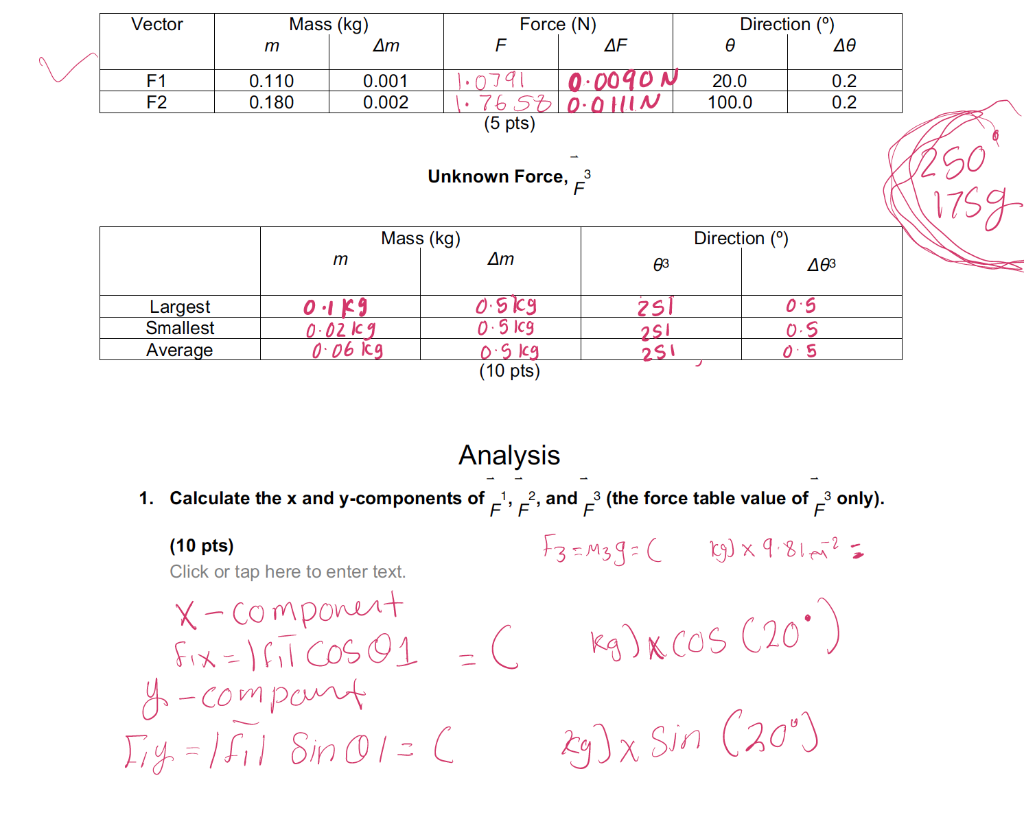 Vector Mass (kg) Force (N) Direction (º)
m Δm F ΔF θ Δθ
F1 0.110 0.001 1.0791 0.0090 N 20.0 0.2
F2 0.180 0.002 1.7658 0.0111N 100.0 0.2
(5 pts)
250°
175g
Unknown Force, F 3
Mass (kg) Direction (º)
m Δm θ3 Δθ3
Largest 0.1 kg 0.5kg 251 0.5
Smallest 0.02 kg 0.5 kg 251 0.5
Average 0.06 kg 0.5 kg 251 0.5
(10 pts)
Analysis
1. Calculate the x and y-components of F 1, F 2, and F 3 (the force table value of F 3 only).
(10 pts) F3 = M3g = ( kg) x 9.81 m-2 =
Click or tap here to enter text.
X - component
F1x = |F1| cos θ1 = ( kg) x cos (20°)
y - compount
F1y = |F1| Sin θ1 = ( kg) x Sin (20°)